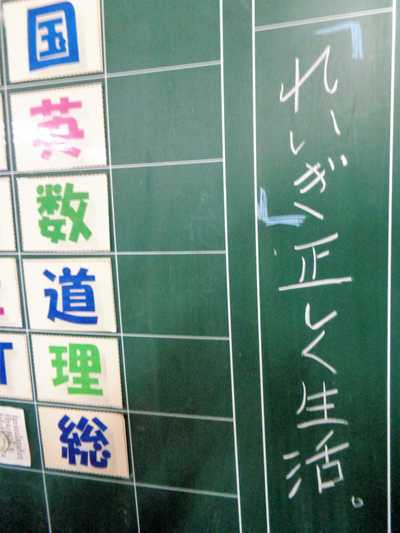 「れいぎ」正しく生活。
国
英
数
道
理
総